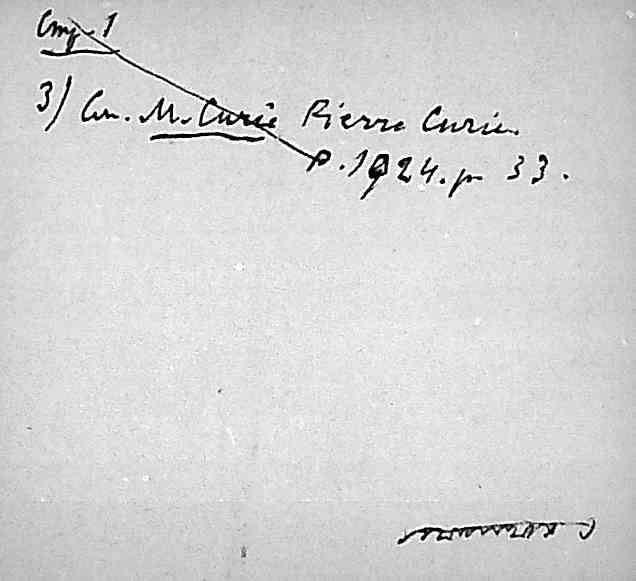 Стр. 1
3) См. M. Curie Pierre Curie.
P. 1924. p 33.